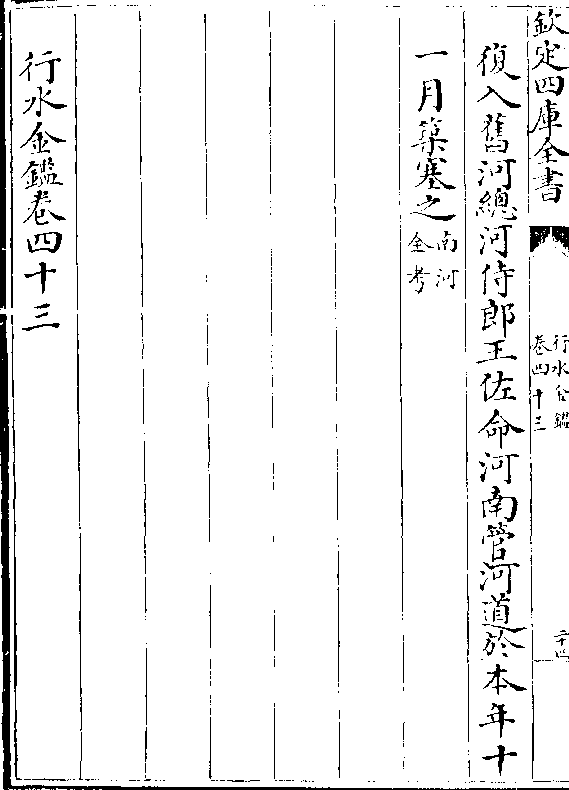 欽定四庫全書
行水金鑑
卷四十三
二十四
復入舊河總河侍郎王佐命河南管河道於本年十
一月築塞之南河
全考
行水金鑑卷四十三